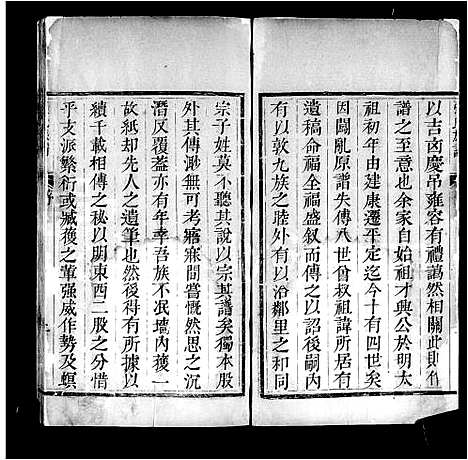 以吉凶慶吊雍容有禮藹然相關此則作
譜之至意也余家自始祖才興公於明太
祖初年由建康遷平定迄今十有四世矣
因闖亂原譜失傳八世曾叔祖諱所居有
遺稿命福全福盛叙而傳之以詔後嗣內
有以敦九族之睦外有以洽鄰里之和同
宗子姓莫不聽其說以宗其譜矣獨本股
外其傳渺無可考寤寐間嘗慨然思之沉
潛反覆蓋亦有年幸吾族不泯墻內獲一
故紙却先人之遺筆也然後得有所據以
續千載相傳之秘以開東西二股之分惜
乎支派繁衍或臧獲之輩强威作勢及螟